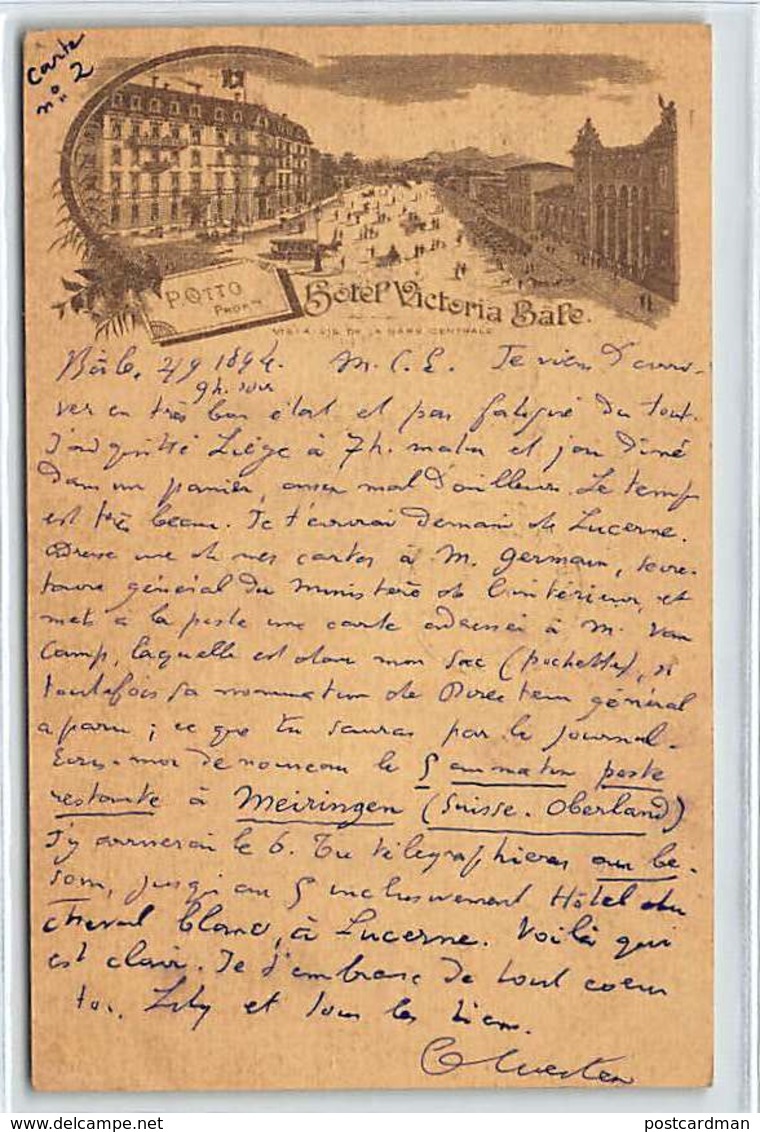 Carte
no 2
P. OTTO
PROPR.
Hôtel Victoria Bâle.
VIS-À-VIS DE LA GARE CENTRALE
Bâle, 2/9 1894. M. C. E. Je viens d'arri-
9 h. soir
ver en très bon état et pas fatigué du tout.
J'ai quitté Liége à 7 h. matin et j'ai dîné
dans un panier, assez mal d'ailleurs. Le temps
est très beau. Je t'écrirai demain de Lucerne.
Adresse une de mes cartes à M. Germain, secré-
taire général du Ministère de l'intérieur, et
mets à la poste une carte adressée à M. Van
Camp, laquelle est dans mon sac (pochette), si
toutefois sa nomination de Directeur général
a paru ; ce que tu sauras par le journal.
Ecris-moi de nouveau le 5 au matin poste
restante à Meiringen (Suisse. Oberland)
J'y arriverai le 6. Tu télégraphieras au be-
soin, jusqu'au 5 inclusivement Hôtel du
Cheval blanc, à Lucerne. Voilà qui
est clair. Je t'embrasse de tout coeur
toi, Lily et tous les tiens.
postcardman